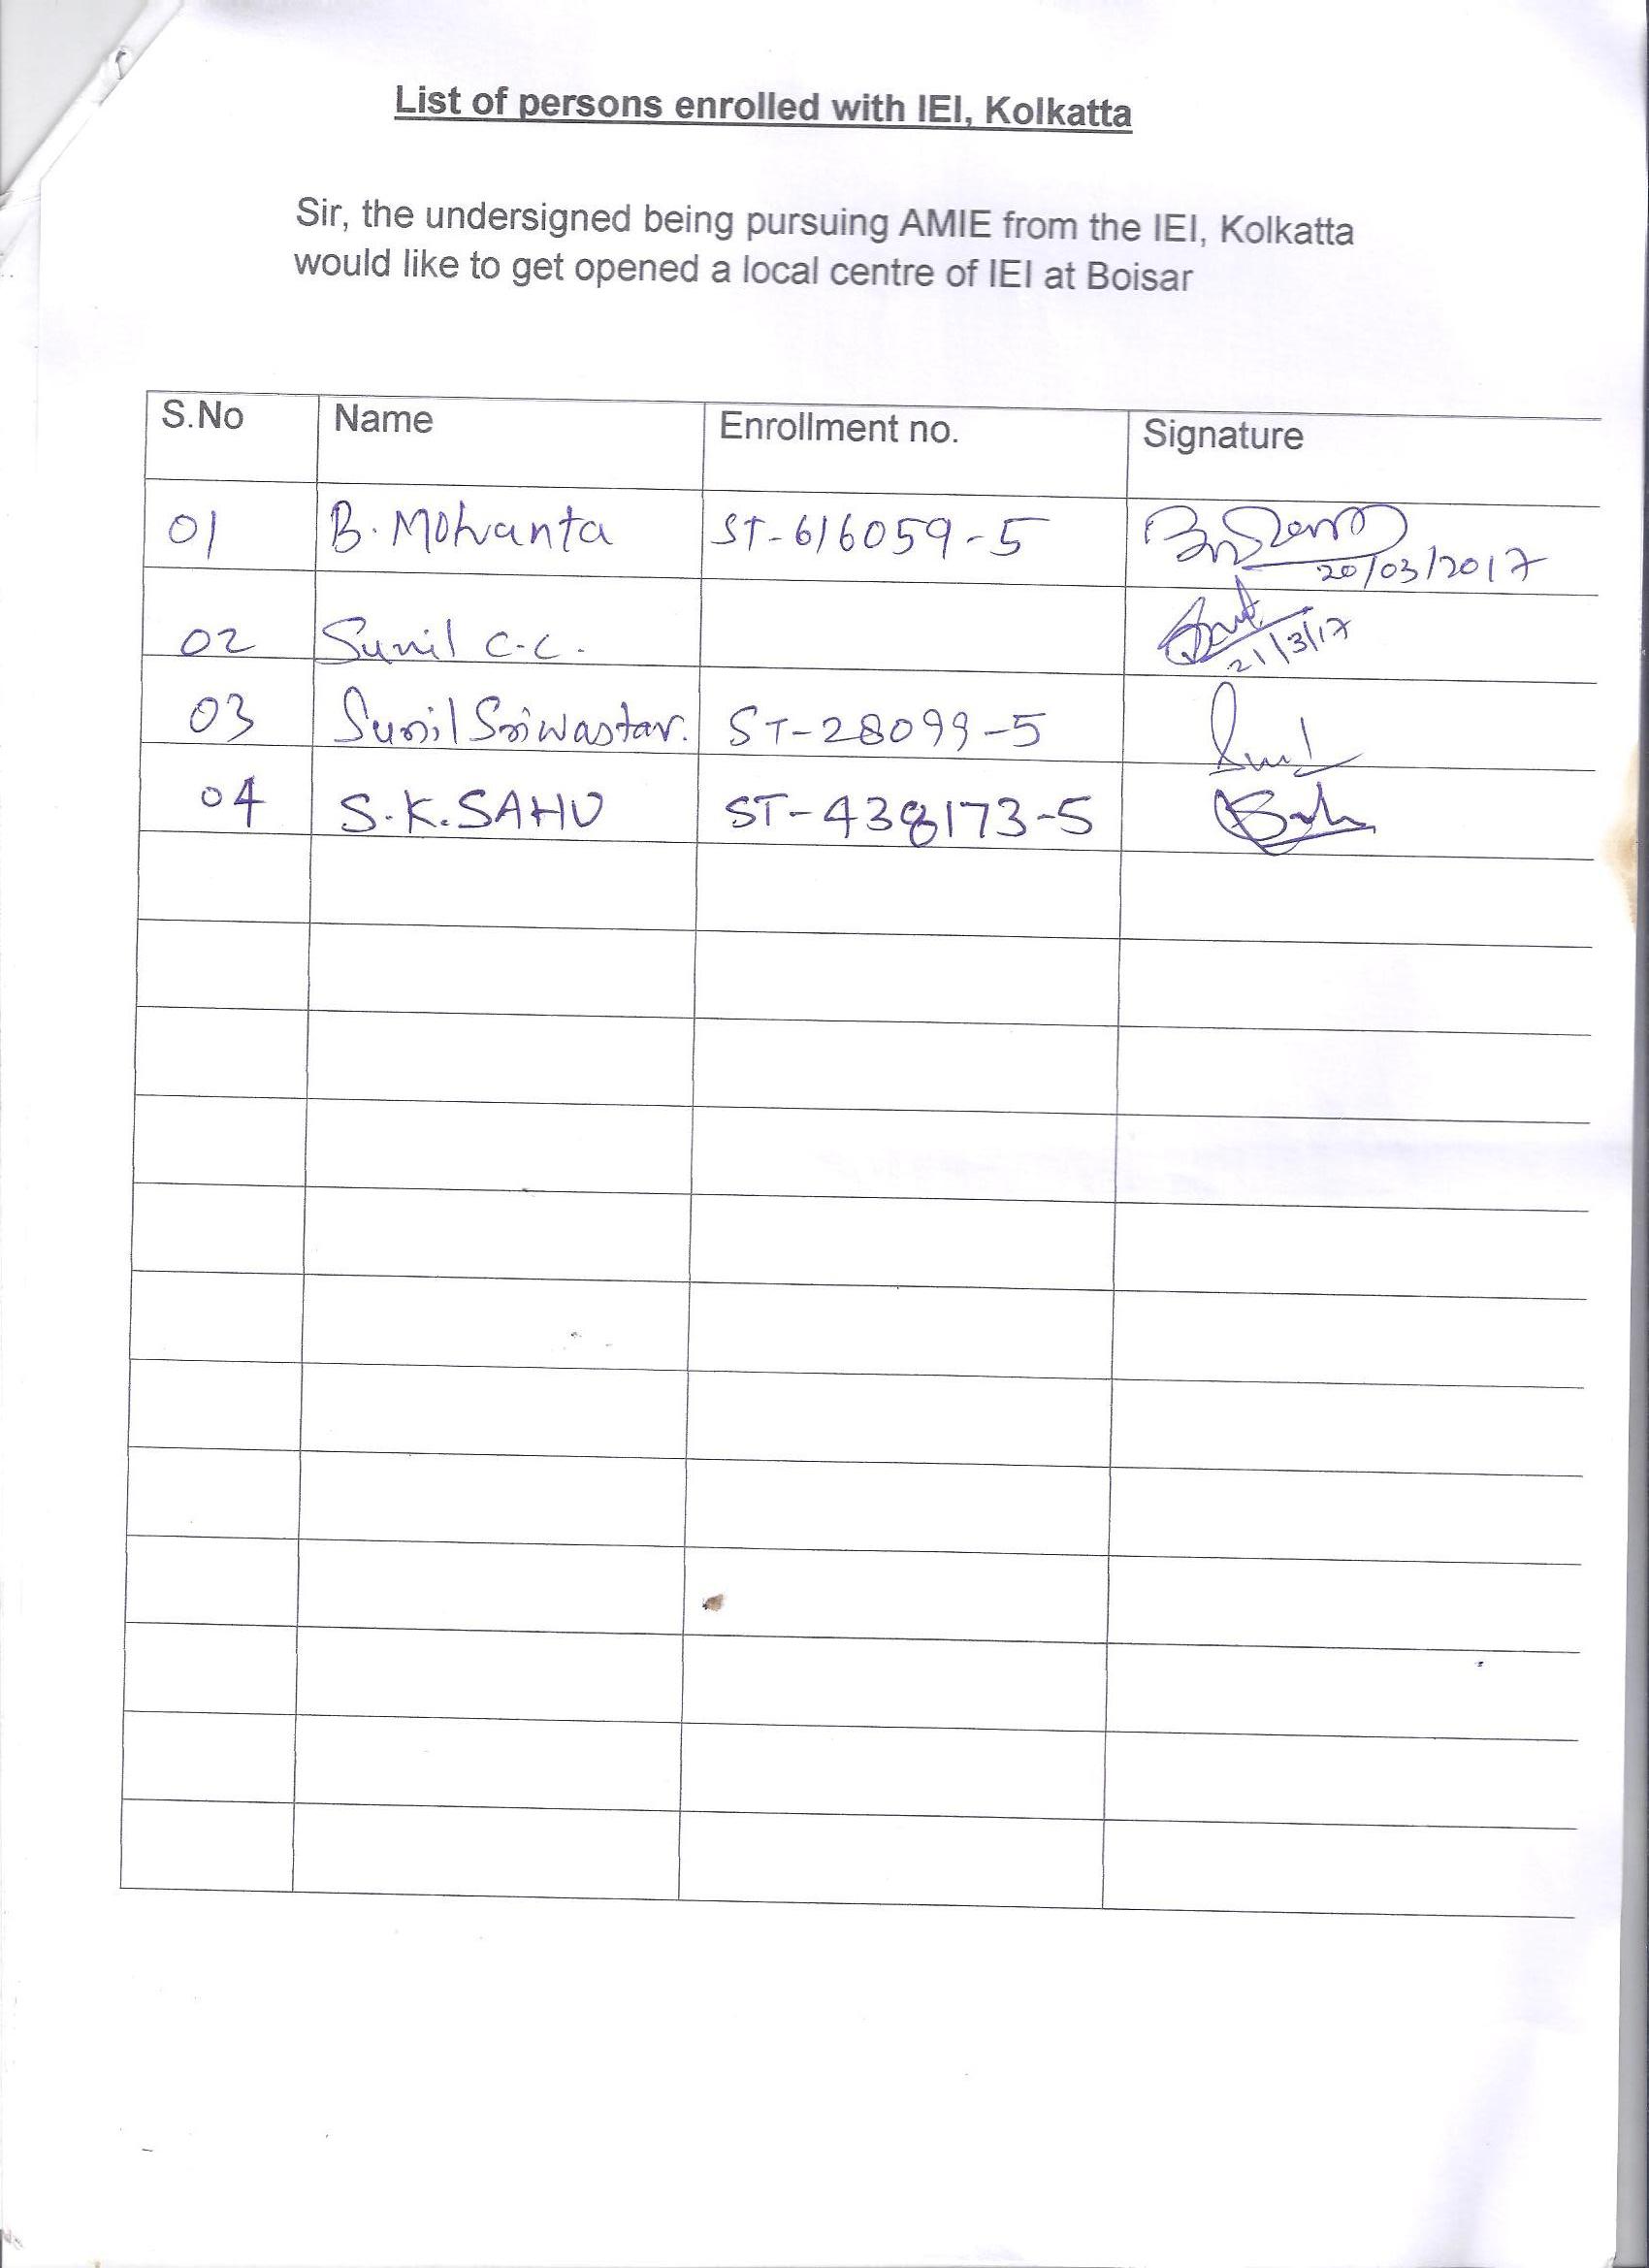 List of persons enrolled with IEI, Kolkatta
Sir, the undersigned being pursuing AMIE from the IEI, Kolkatta
would like to get opened a local centre of IEI at Boisar
S.No Name Enrollment no. Signature
01 B. Mohanta ST-616059-5
20/03/2017
02 Sunil C.C.
21/3/17
03 Sunil Sriwastav. ST-28099-5
04 S.K.SAHU ST-438173-5